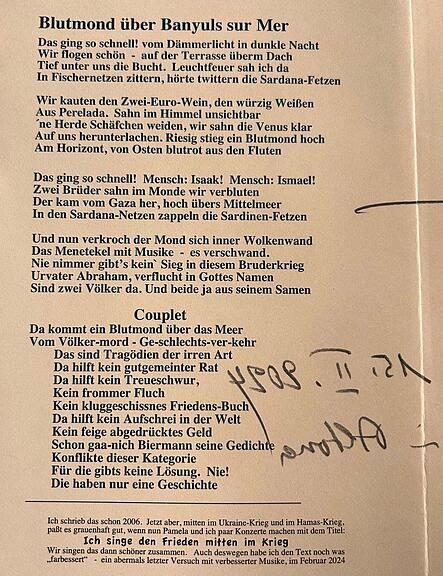 Blutmond über Banyuls sur Mer
Das ging so schnell! vom Dämmerlicht in dunkle Nacht
Wir flogen schön - auf der Terrasse überm Dach
Tief unter uns die Bucht. Leuchtfeuer sah ich da
In Fischernetzen zittern, hörte twittern die Sardana-Fetzen
Wir kauten den Zwei-Euro-Wein, den würzig Weißen
Aus Perelada. Sahn im Himmel unsichtbar
'ne Herde Schäfchen weiden, wir sahn die Venus klar
Auf uns herunterlachen. Riesig stieg ein Blutmond hoch
Am Horizont, von Osten blutrot aus den Fluten
Das ging so schnell! Mensch: Isaak! Mensch: Ismael!
Zwei Brüder sahn im Monde wir verbluten
Der kam vom Gaza her, hoch übers Mittelmeer
In den Sardana-Netzen zappeln die Sardinen-Fetzen
Und nun verkroch der Mond sich inner Wolkenwand
Das Menetekel mit Musike - es verschwand.
Nie nimmer gibt's kein` Sieg in diesem Bruderkrieg
Urvater Abraham, verflucht in Gottes Namen
Sind zwei Völker da. Und beide ja aus seinem Samen
Couplet
Da kommt ein Blutmond über das Meer
Vom Völker-mord - Ge-schlechts-ver-kehr
Das sind Tragödien der irren Art
Da hilft kein gutgemeinter Rat
Da hilft kein Treueschwur,
Kein frommer Fluch
Kein kluggeschissnes Friedens-Buch
Da hilft kein Aufschrei in der Welt
Kein feige abgedrücktes Geld
Schon gaa-nich Biermann seine Gedichte
Konflikte dieser Kategorie
Für die gibts keine Lösung. Nie!
Die haben nur eine Geschichte
15. II. 2024
Altona
Ich schrieb das schon 2006. Jetzt aber, mitten im Ukraine-Krieg und im Hamas-Krieg,
paßt es grauenhaft gut, wenn nun Pamela und ich paar Konzerte machen mit dem Titel:
Ich singe den Frieden mitten im Krieg
Wir singen das dann schöner zusammen. Auch deswegen habe ich den Text noch was
„farbessert" - ein abermals letzter Versuch mit verbesserter Musike, im Februar 2024